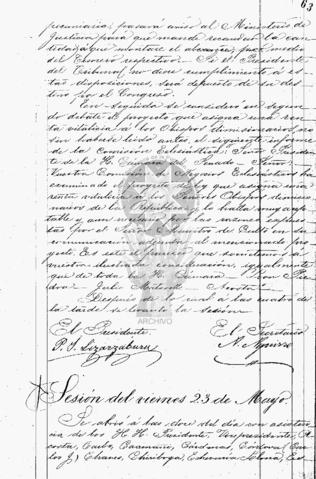 63
pecuniaria, pasará aviso al Ministerio de
Justicia para que mande recaudar la can-
tidad á que montare el alcance, por medio
del Tesoro respectivo. - Si el Presidente
del Tribunal no diere cumplimiento á es-
tas disposiciones, será depuesto de su des-
tino por el Congreso.
En seguida se consideró en segun-
do debate el proyecto que asigna una ren-
ta vitalicia á los Obispos dimisionarios, no
sin haberse leido antes el siguiente informe
de la Comisión Eclesiástica: "Señor Presiden-
te de la H. Cámara del Senado. - Señor:
Vuestra Comisión de Negocios Eclesiásticos ha
examinado el proyecto de ley que asigna una
renta vitalicia á los Señores Obispos dimisio-
narios de la República, y lo halla muy acep-
table y aun necesario por las razones expues-
tas por el Señor Ministro de Culto en la co-
municación adjunta al mencionado pro-
yecto. Es este el parecer que sometemos á
vuestra ilustrada consideración, igualmente
que de toda la H. Cámara.
Julio Matovelle
Después de lo cual á las cuatro de
la tarde se levantó la sesión.
El Presidente. El Secretario
P. I. Lizarzaburu
ARCHIVO
Sesión del viernes 23 de Mayo.
Se abrió á las doce del día con asisten-
cia de los H. H. Presidente, Vicepresidente, A-
costa, Cárdenas, Córdova,
Chaves, Chiriboga,